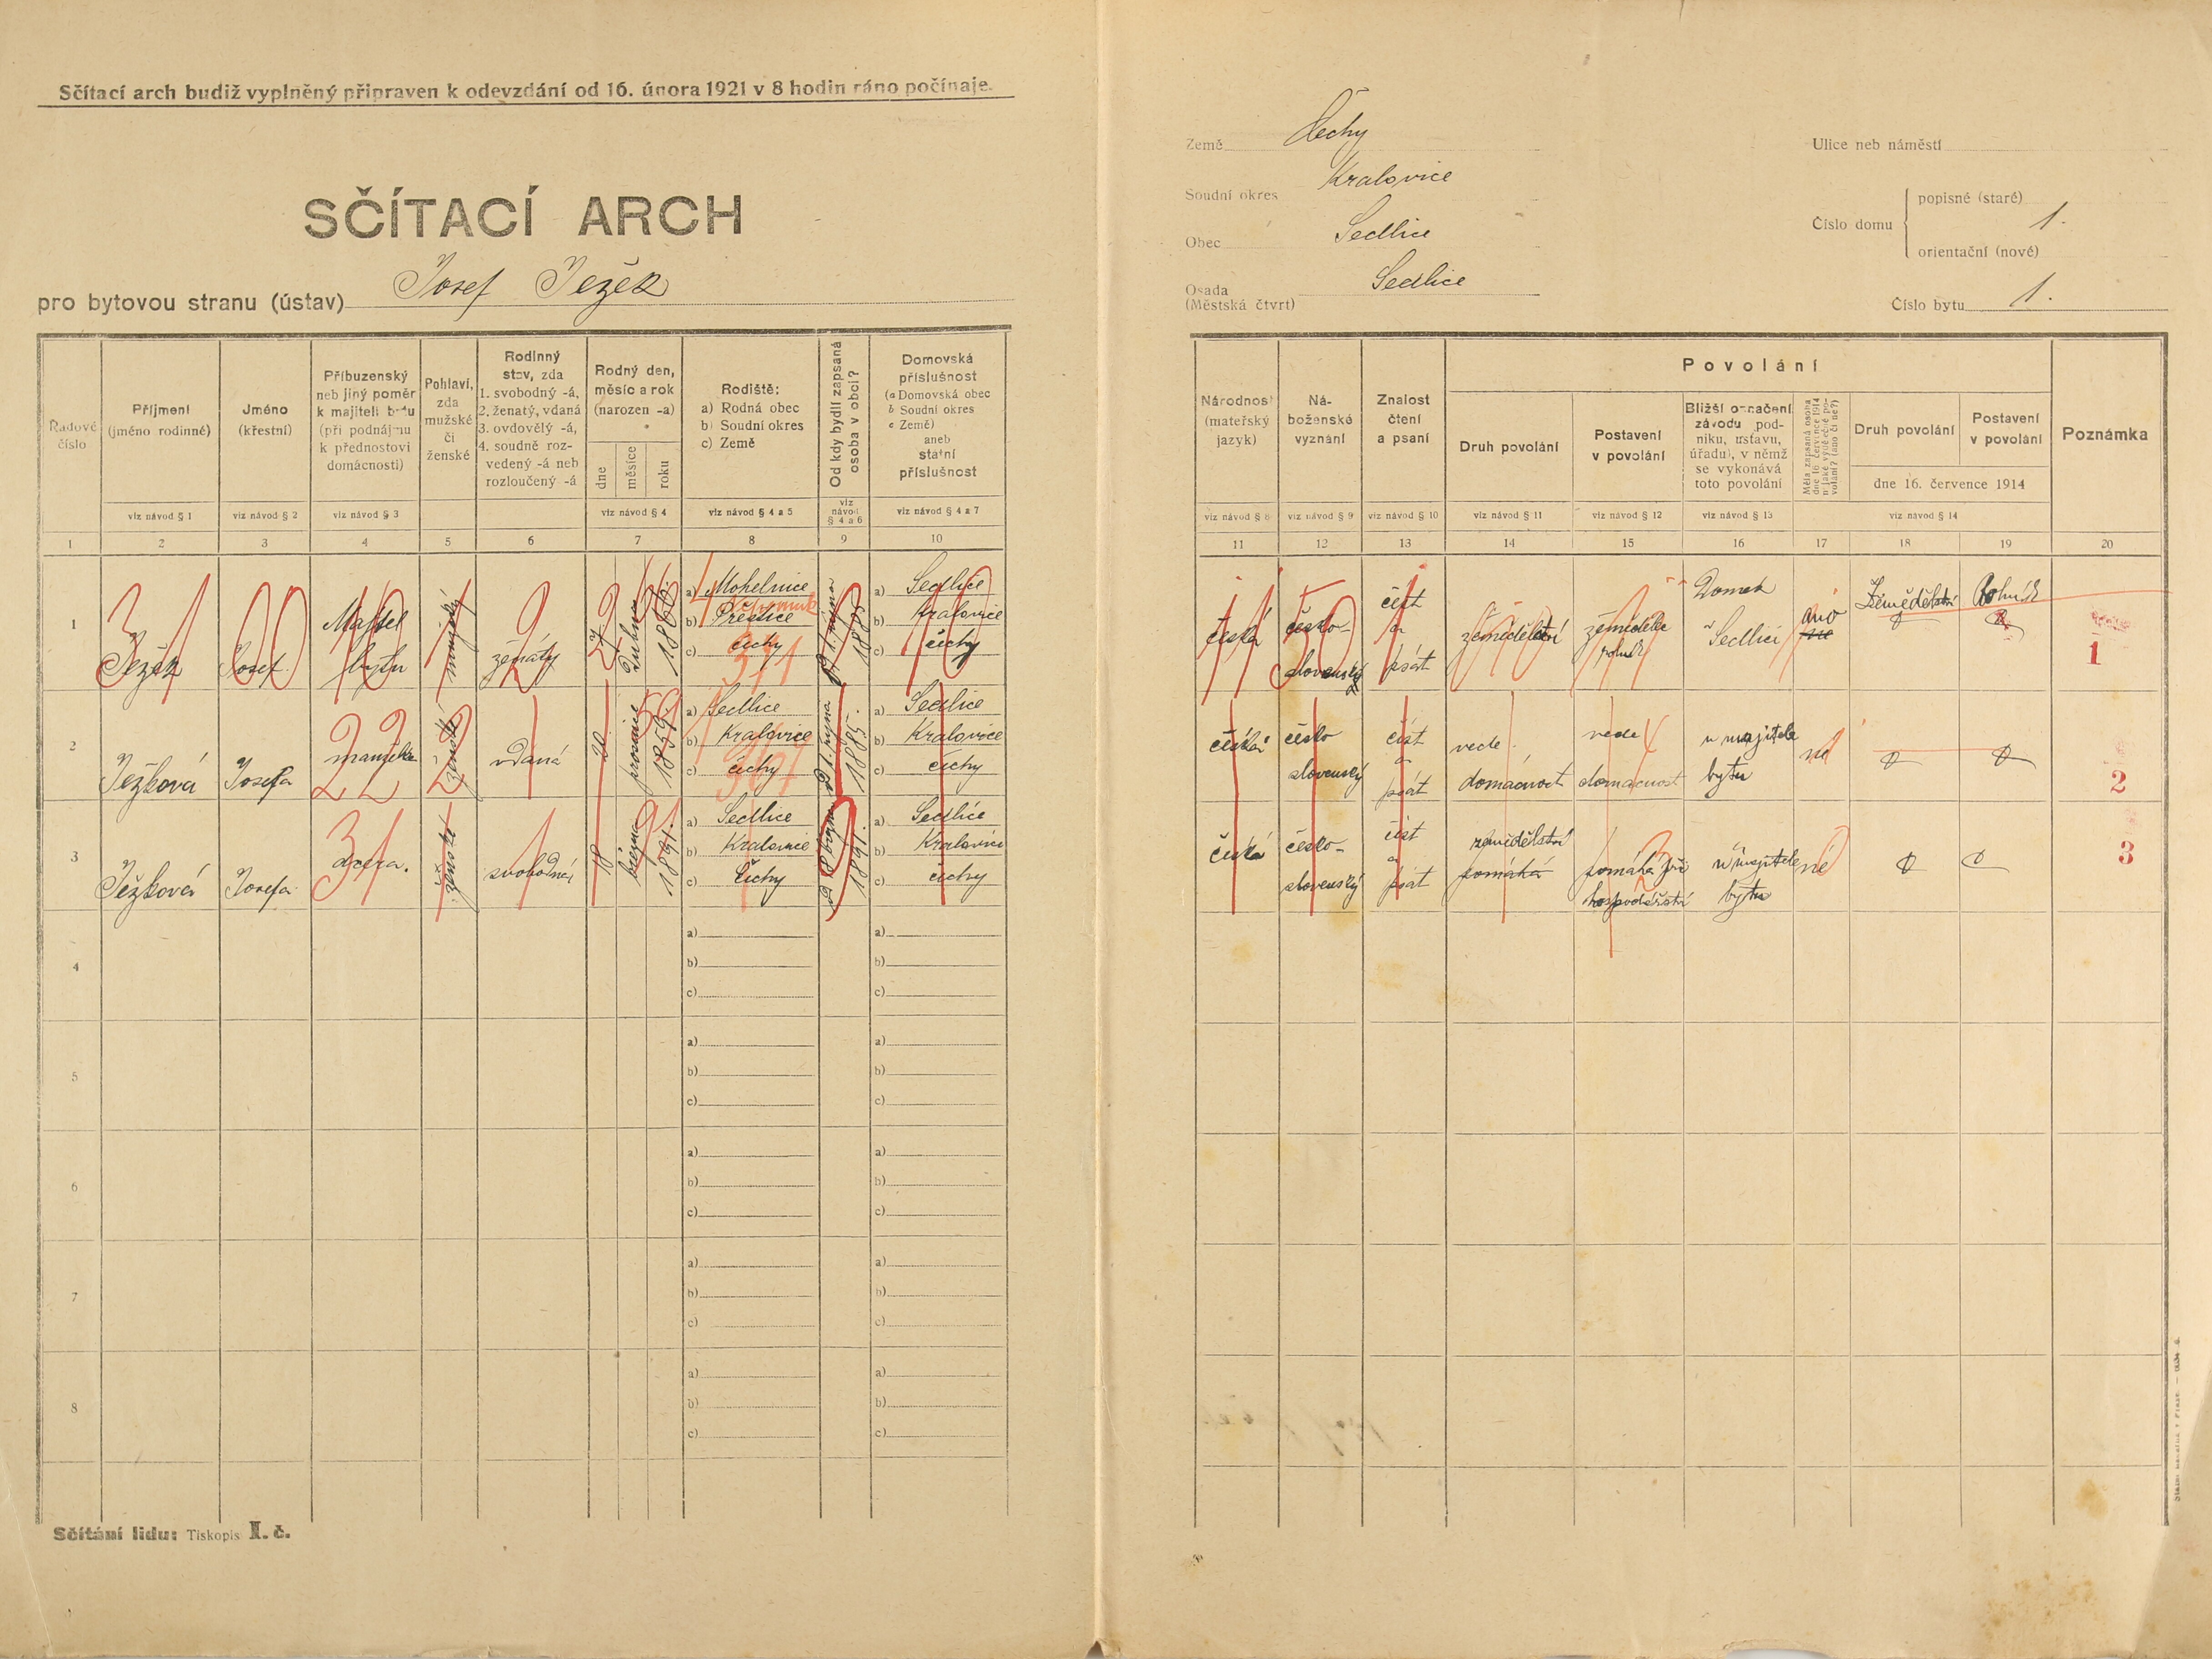 Sčítací arch budiž vyplněný připraven k odevzdání od 16. února 1921 v 8 hodin ráno počínaje.
SČÍTACÍ ARCH
pro bytovou stranu (ústav) Josef Ježek
Země Čechy
Soudní okres Kralovice
Obec Sedlice
Osada Sedlice
(Městská čtvrt)
Ulice neb náměstí
Číslo domu
popisné (staré) 1.
orientační (nové)
Číslo bytu 1.
Řadové číslo
Příjmení (jméno rodinné)
Jméno (křestní)
Příbuzenský neb jiný poměr k majiteli bytu (při podnájmu k přednostovi domácnosti)
Pohlaví, zda mužské či ženské
Rodinný stav, zda 1. svobodný -á, 2. ženatý, vdaná 3. ovdovělý -á, 4. soudně rozvedený -á neb rozloučený -á
Rodný den, měsíc a rok (narozen -a)
dne měsíce roku
Rodiště: a) Rodná obec b) Soudní okres c) Země
Od kdy bydlí zapsaná osoba v obci?
Domovská příslušnost (a Domovská obec b Soudní okres c Země) aneb statní příslušnost
viz návod § 1 viz návod § 2 viz návod § 3 viz návod § 4 viz návod § 4 a 5 viz návod § 4 a 6 viz návod § 4 a 7
1 2 3 4 5 6 7 8 9 10
Národnost (mateřský jazyk)
Náboženské vyznání
Znalost čtení a psaní
Povolání
Druh povolání
Postavení v povolání
Bližší označení závodu, podniku, ústavu, úřadu), v němž se vykonává toto povolání
Měla zapsaná osoba dne 16. července 1914 nějaké výdělečné povolání? (ano či ne?)
Druh povolání
Postavení v povolání
dne 16. července 1914
Poznámka
viz návod § 8 viz návod § 9 viz návod § 10 viz návod § 11 viz návod § 12 viz návod § 13 viz návod § 14
11 12 13 14 15 16 17 18 19 20
1 Ježek Josef Majitel bytu mužský ženatý 27 1866.
a) Mohelnice
b) Přeštice
c) čechy
371
1885
a) Sedlice
b) Kralovice
c) čechy
česká česko-slovenský číst a psát zemědělství zemědělec rolník Domek v Sedlici ano Zemědělství Rolník
1
2 Ježková Josefa manželka ženská vdaná 20. prosince 1859.
a) Sedlice
b) Kralovice
c) čechy
1885.
a) Sedlice
b) Kralovice
c) čechy
česká česko slovenský číst a psát vede domácnost vede domácnost u majitele bytu ne
2
3 Ježková Josefa dcera. ženská svobodná 18 března 1891.
a) Sedlice
b) Kralovice
c) Čechy
1891.
a) Sedlice
b) Kralovice
c) čechy
česká česko-slovenský číst a psát zemědělství pomáhá pomáhá při hospodářství u majitele bytu ne
3
4 a) b) c) a) b) c)
5 a) b) c) a) b) c)
6 a) b) c) a) b) c)
7 a) b) c) a) b) c)
8 a) b) c) a) b) c)
Sčítání lidu: Tiskopis I. č.